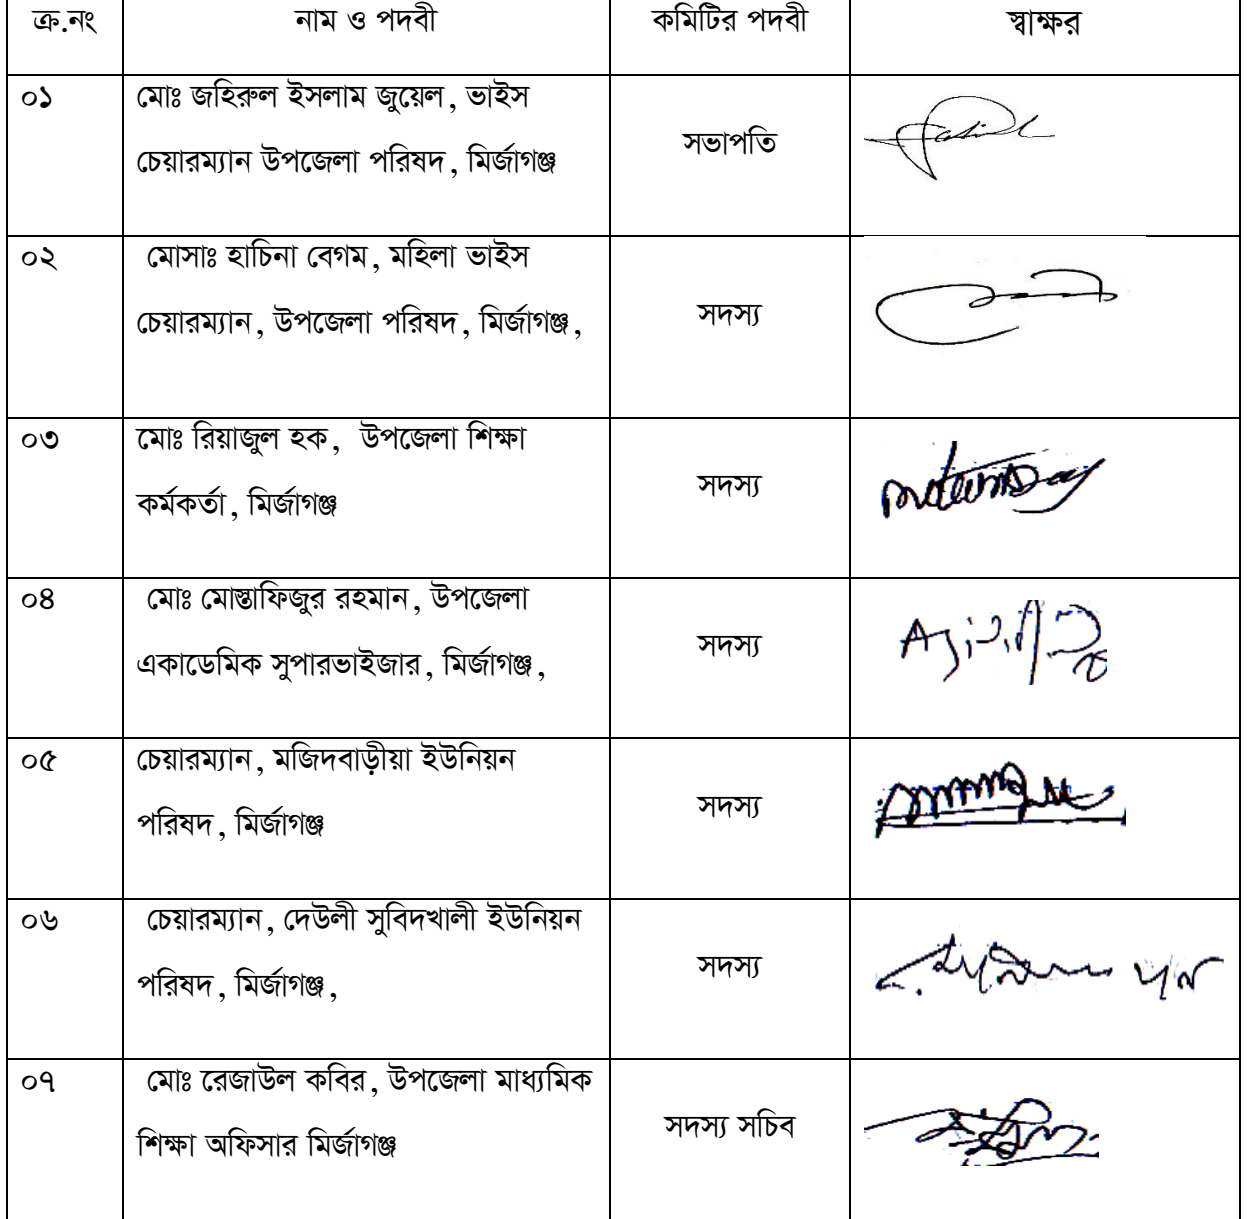 ক্র.নং নাম ও পদবী কমিটির পদবী স্বাক্ষর
০১ মোঃ জহিরুল ইসলাম জুয়েল, ভাইস
চেয়ারম্যান উপজেলা পরিষদ, মির্জাগঞ্জ
সভাপতি
০২ মোসাঃ হাচিনা বেগম, মহিলা ভাইস
চেয়ারম্যান, উপজেলা পরিষদ, মির্জাগঞ্জ,
সদস্য
০৩ মোঃ রিয়াজুল হক, উপজেলা শিক্ষা
কর্মকর্তা, মির্জাগঞ্জ
সদস্য
০৪ মোঃ মোস্তাফিজুর রহমান, উপজেলা
একাডেমিক সুপারভাইজার, মির্জাগঞ্জ,
সদস্য
০৫ চেয়ারম্যান, মজিদবাড়ীয়া ইউনিয়ন
পরিষদ, মির্জাগঞ্জ
সদস্য
০৬ চেয়ারম্যান, দেউলী সুবিদখালী ইউনিয়ন
পরিষদ, মির্জাগঞ্জ,
সদস্য
০৭ মোঃ রেজাউল কবির, উপজেলা মাধ্যমিক
শিক্ষা অফিসার মির্জাগঞ্জ
সদস্য সচিব